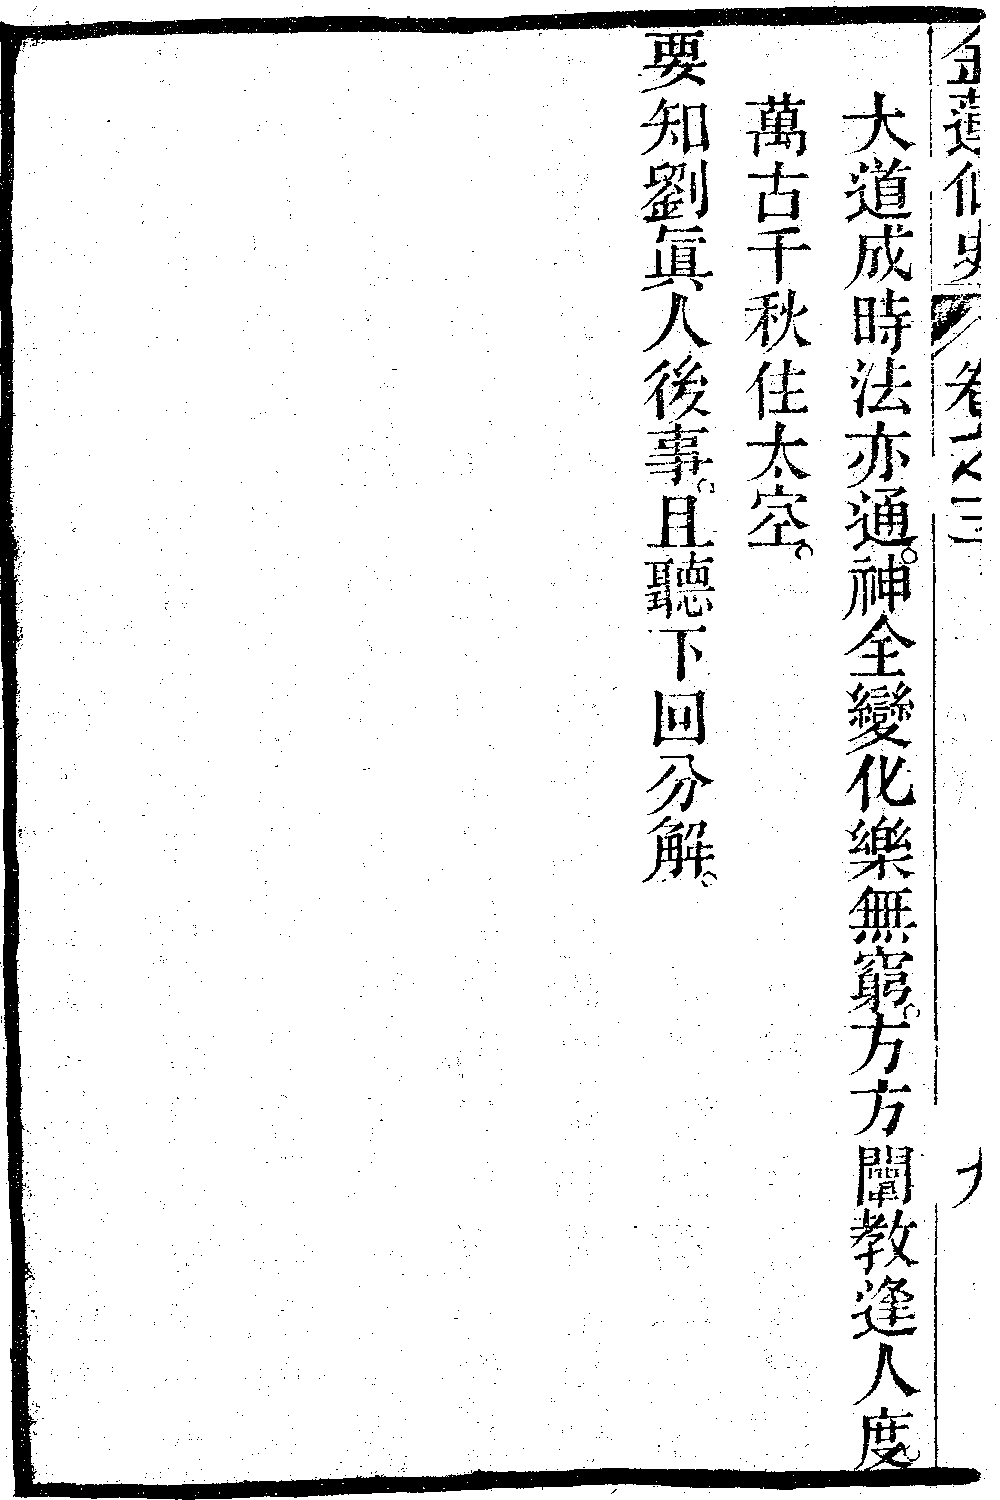 金蓮仙史 卷之三 九
大道成時法亦通。神全變化樂無窮。方方闡教逢人度。
萬古千秋住太空。
要知劉眞人後事。且聽下回分解。